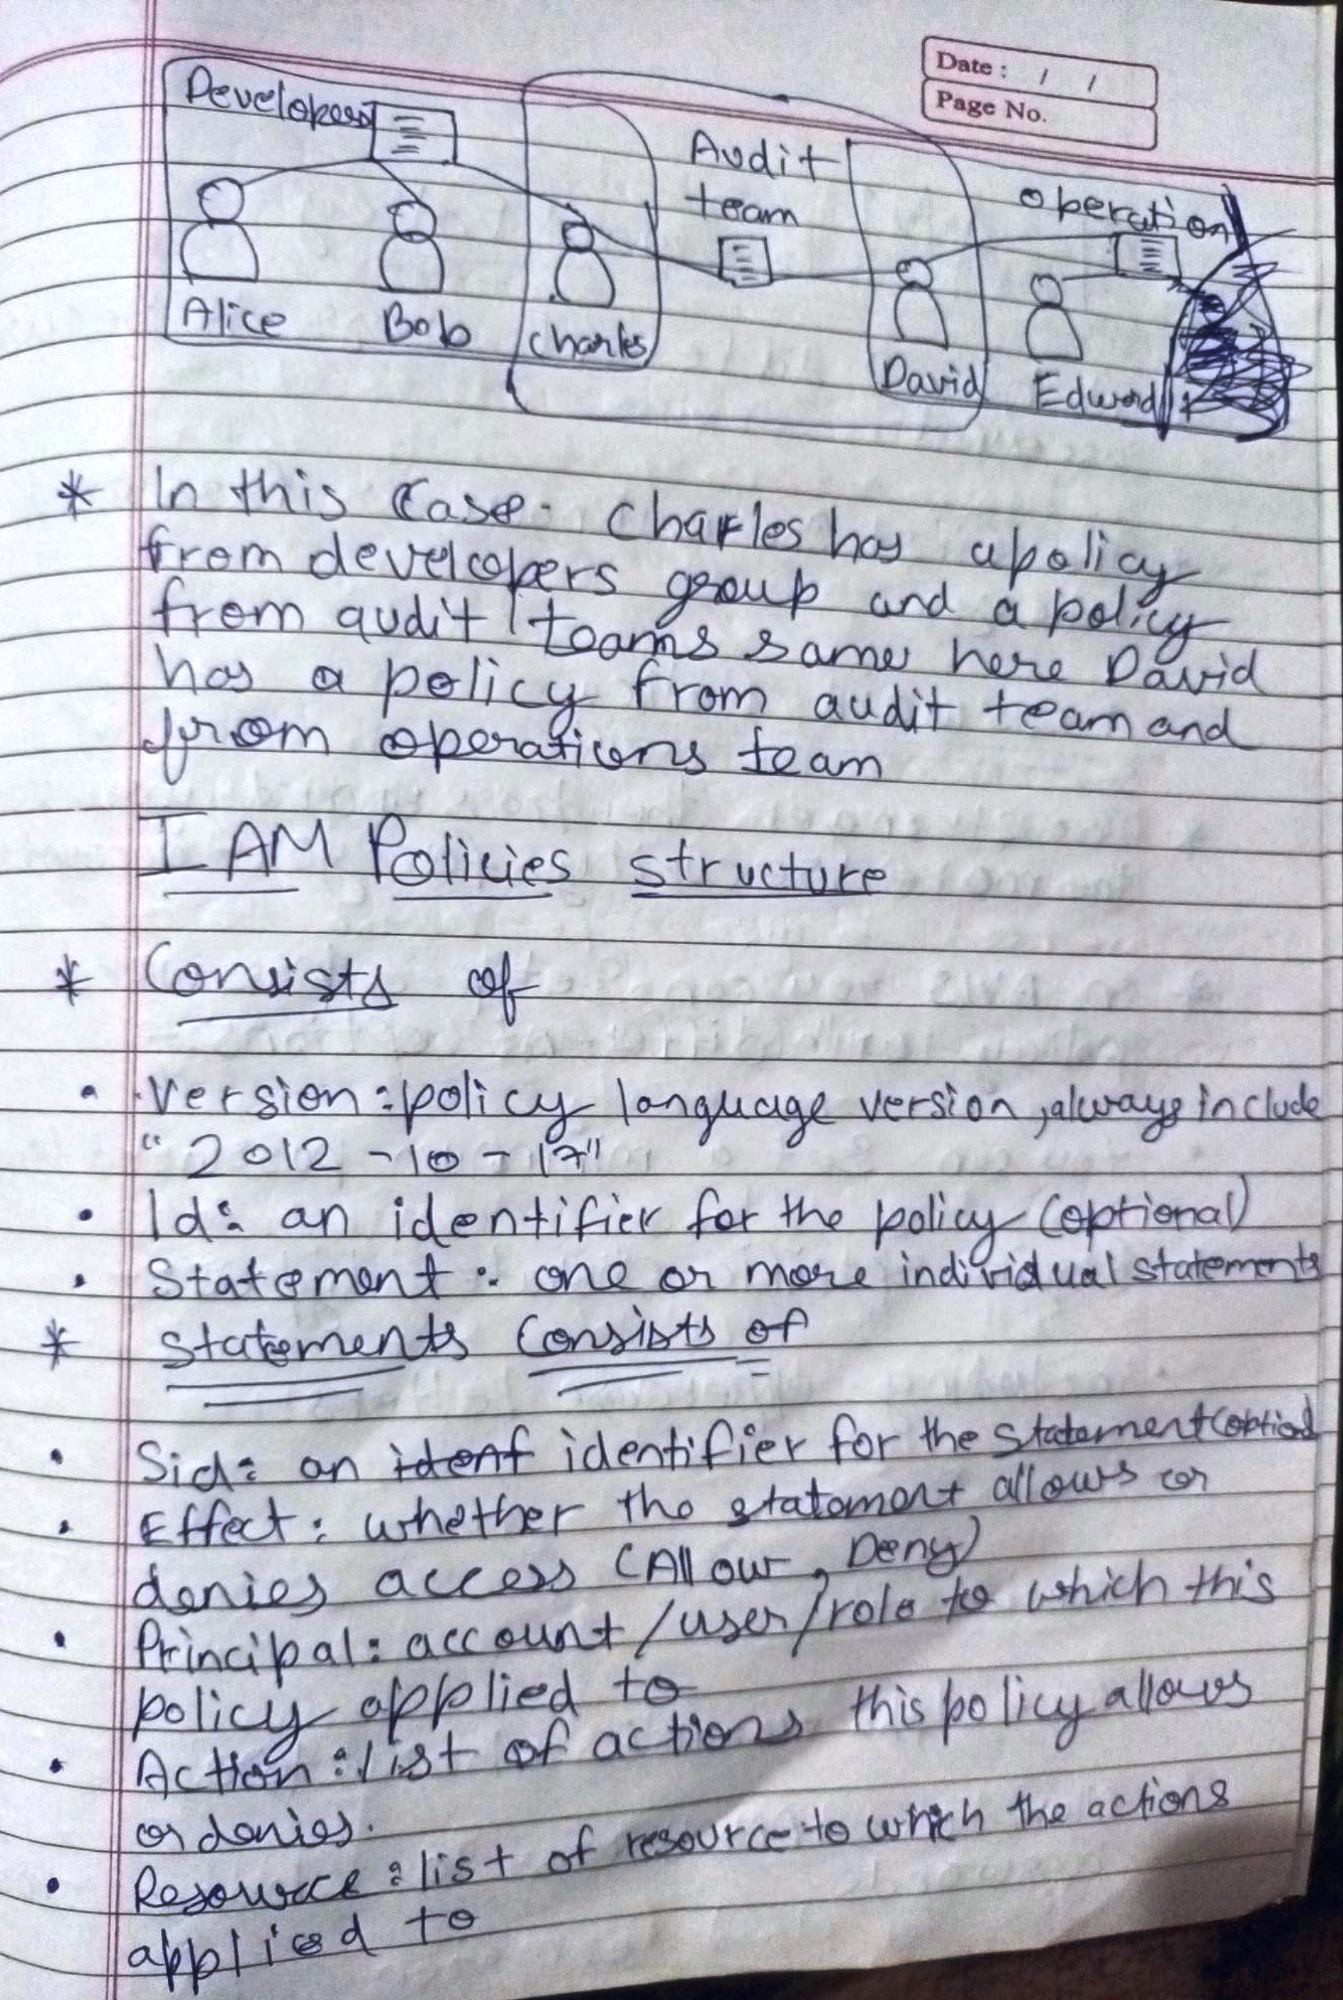 Date : / /
Page No.
Developers
Audit
team
operation
Alice
Bob
charles
David
Edward
* In this Case. Charles has a policy
from developers group and a policy
from audit teams same here David
has a policy from audit team and
from operations team
IAM Policies structure
* Consists of
• Version : policy language version, always include
"2012-10-17"
• Id : an identifier for the policy (optional)
• Statement : one or more individual statements
* Statements Consists of
• Sid : an idenf identifier for the statement (optional
• Effect : whether the statement allows or
denies access (Allow, Deny)
• Principal : account/user/role to which this
policy applied to
• Action : list of actions this policy allows
or denies.
• Resource : list of resource to which the actions
applied to